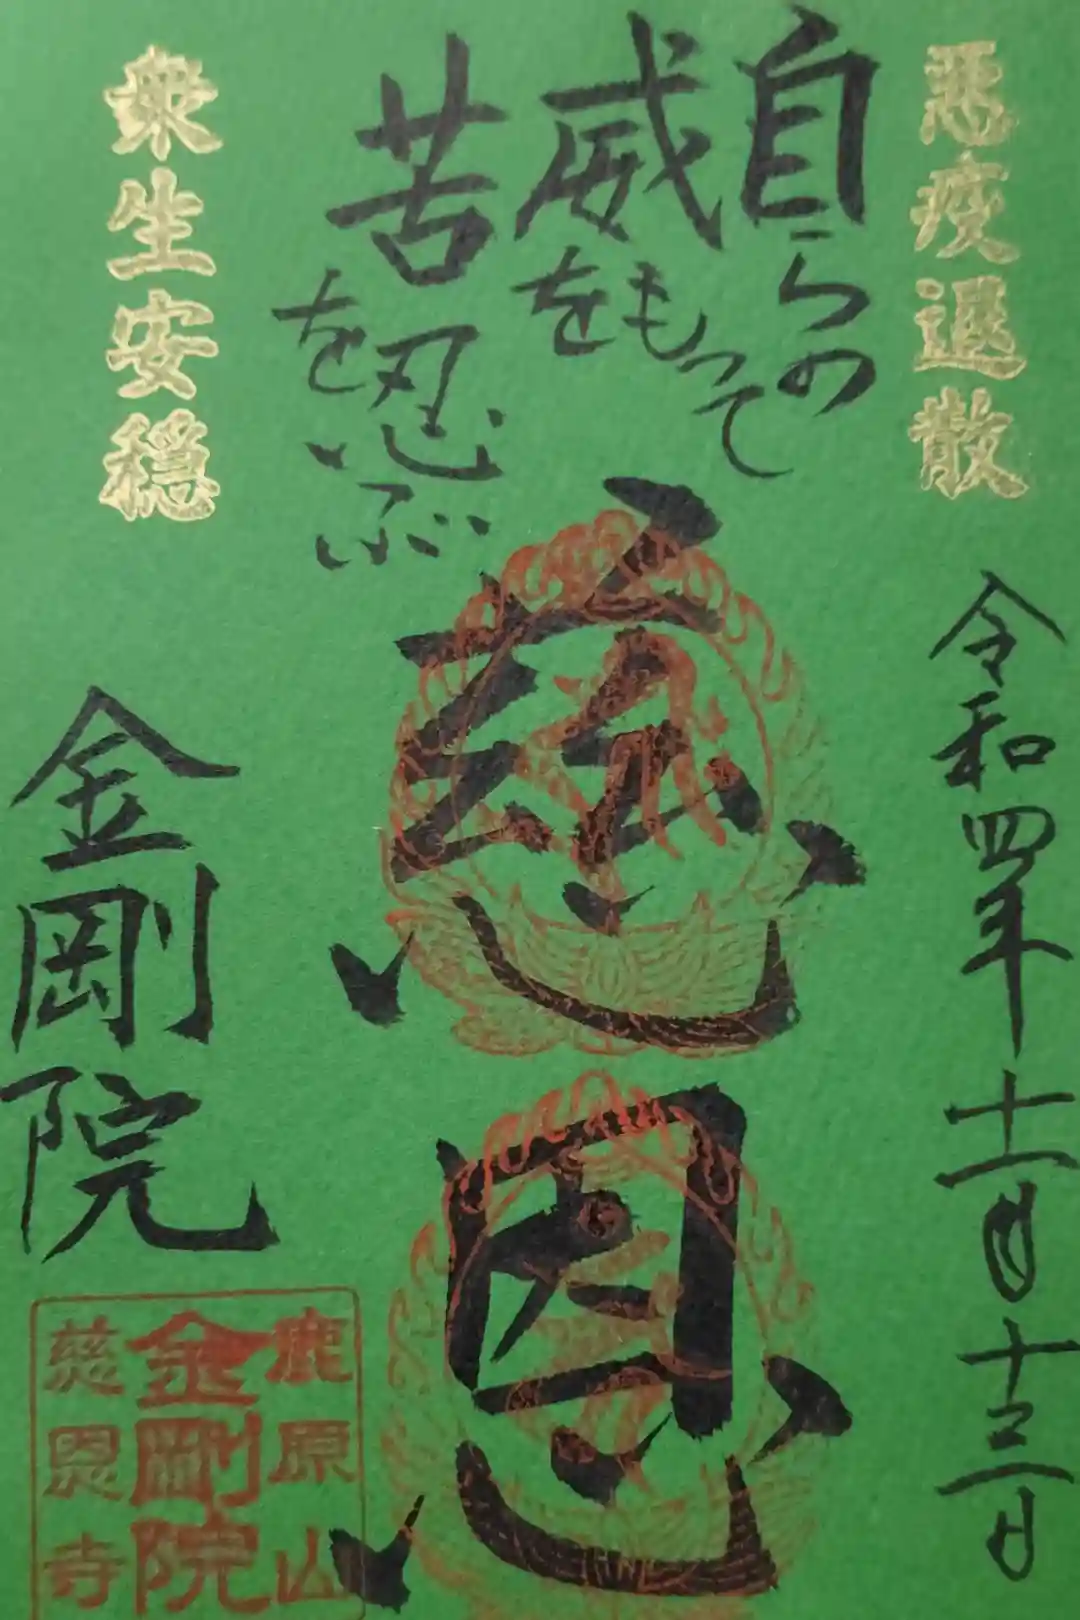 悪疫退散
自らの
威をもって
苦を忍ぶ
衆生安穏
令和四年十一月十三日
慈恩
金剛院
鹿原山
金剛院
慈恩寺